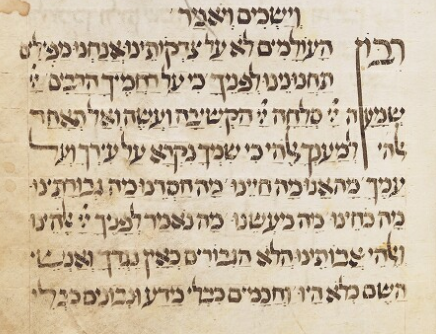 וישכים ויאמר
רבון העולמים לא על צדקותינו אנחנו מפילים
תחנונינו לפניך כי על רחמיך הרבים יי
שמעה יי סלחה יי הקשיבה ועשה ואל תאחר
למענך אלהי כי שמך נקרא על עירך ועל
עמך מה אנו מה חיינו מה חסדנו מה גבורתינו
מה כחינו מה מעשנו מה נאמר לפניך יי אלהינו
ואלהי אבותינו הלא הגבורים כאין נגדך ואנשי
השם כלא היו וחכמים כבלי מדע ונבונים כבלי